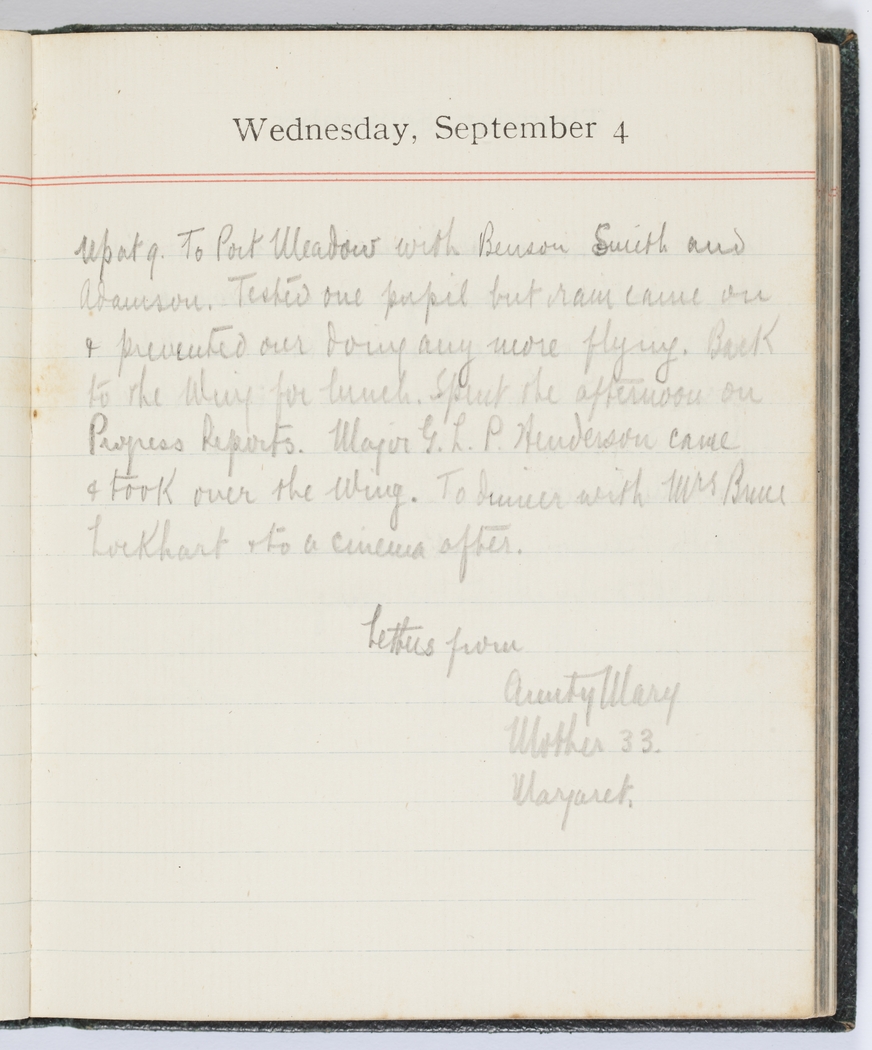 Wednesday, September 4
Up at 9. To Port Meadow with Benson Smith and
Adamson. Tested one pupil but rain came on
& prevented our doing any more flying. Back
to the Wing for lunch. Spent the afternoon on
Progress Reports. Major G. L. P. Henderson came
& took over the Wing. To dinner with Mrs Bruce
Lockhart & to a cinema after.
Letters from
Aunty Mary
Mother 33.
Margaret.